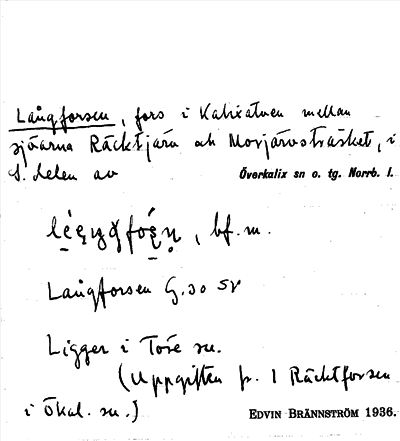 Långforsen, fors i Kalixälven mellan
sjöarna Räcktjärv och Morjärvsträsket, i
S. delen av Överkalix sn o. tg. Norrb. l.
, bf. m.
Långforsen G.30 SV
Ligger i Töre sn.
(Uppgiften fr. 1 Räcktforsen
i Ökal. sn.)
EDVIN BRÄNNSTRÖM 1936.